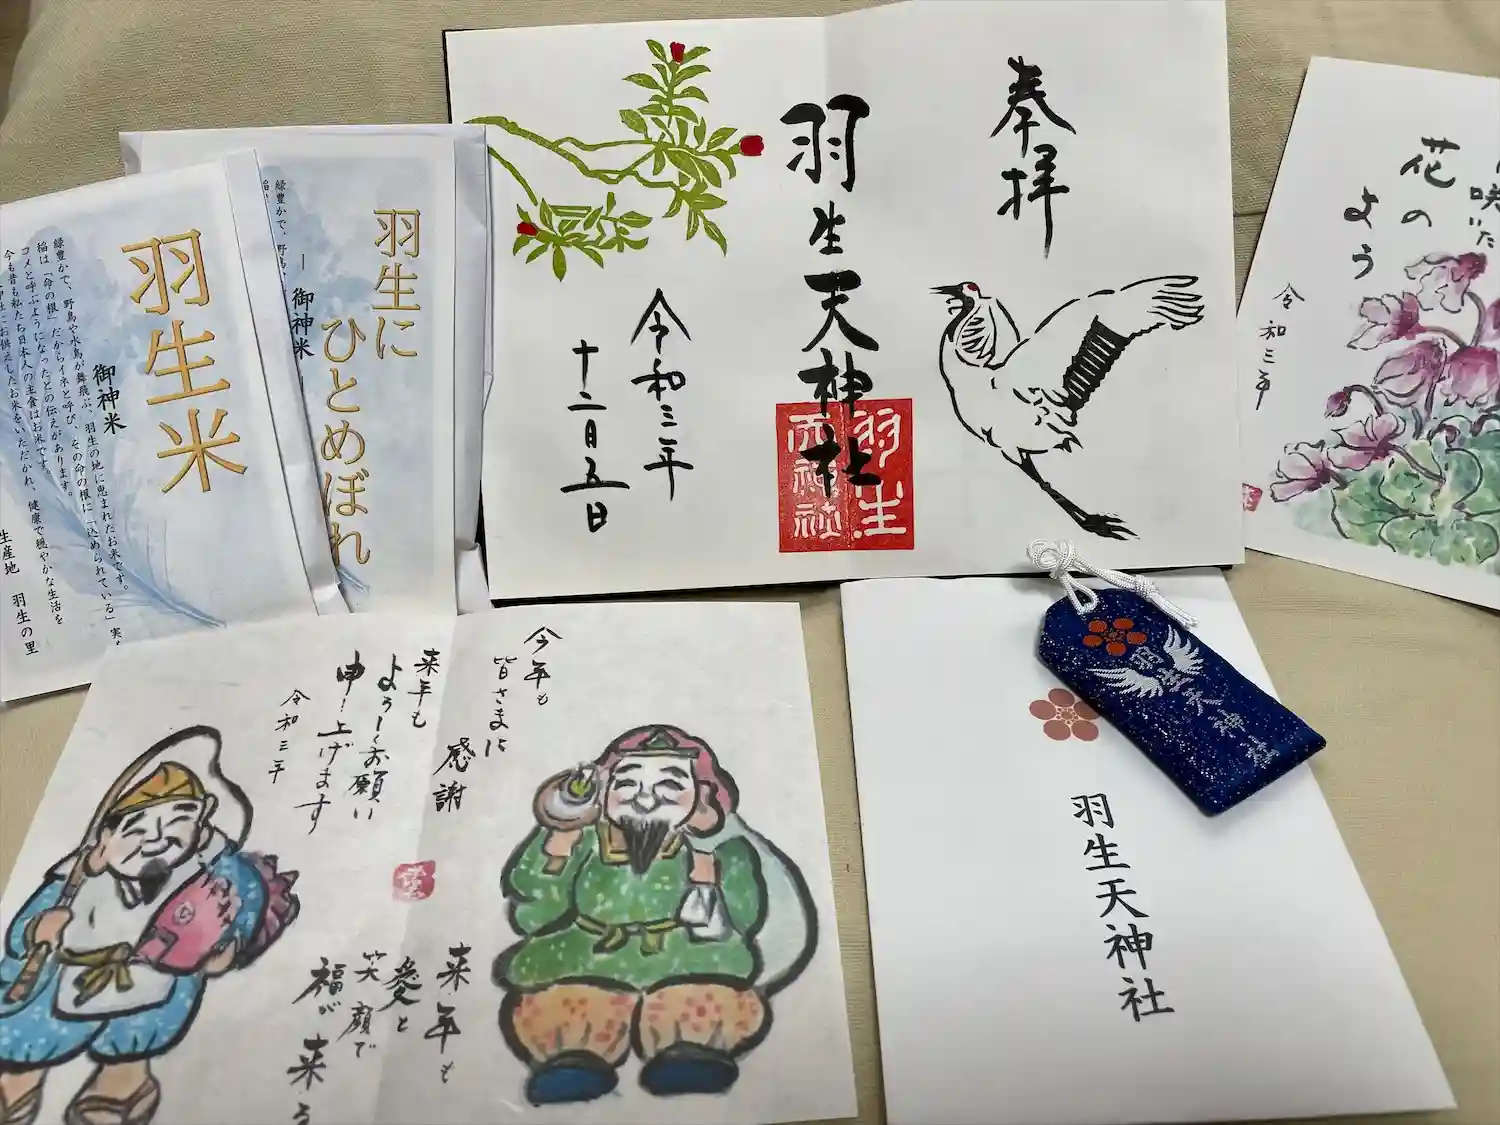 奉拝
羽生天神社
令和三年
十二月五日
羽生
天神社
羽生に
ひとめぼれ
― 御神米 ―
緑豊かで、野鳥
羽生米
御神米
緑豊かで、野鳥や水鳥が舞飛ぶ、羽生の地に恵まれたお米です。
稲は「命の根」だからイネと呼び、その命の根に「込められている」実を
コメと呼ぶようになったとの伝えがあります。
今も昔も私たち日本人の主食はお米です。
にお供えしたお米をいただかれ、健康で穏やかな生活を
生産地 羽生の里
咲いた
花の
よう
令和三年
今年も
皆さまに
感謝
来年も
よろしくお願い
申し上げます
令和三年
来年も
愛と
笑顔で
福が来る
羽生天神社
羽生天神社